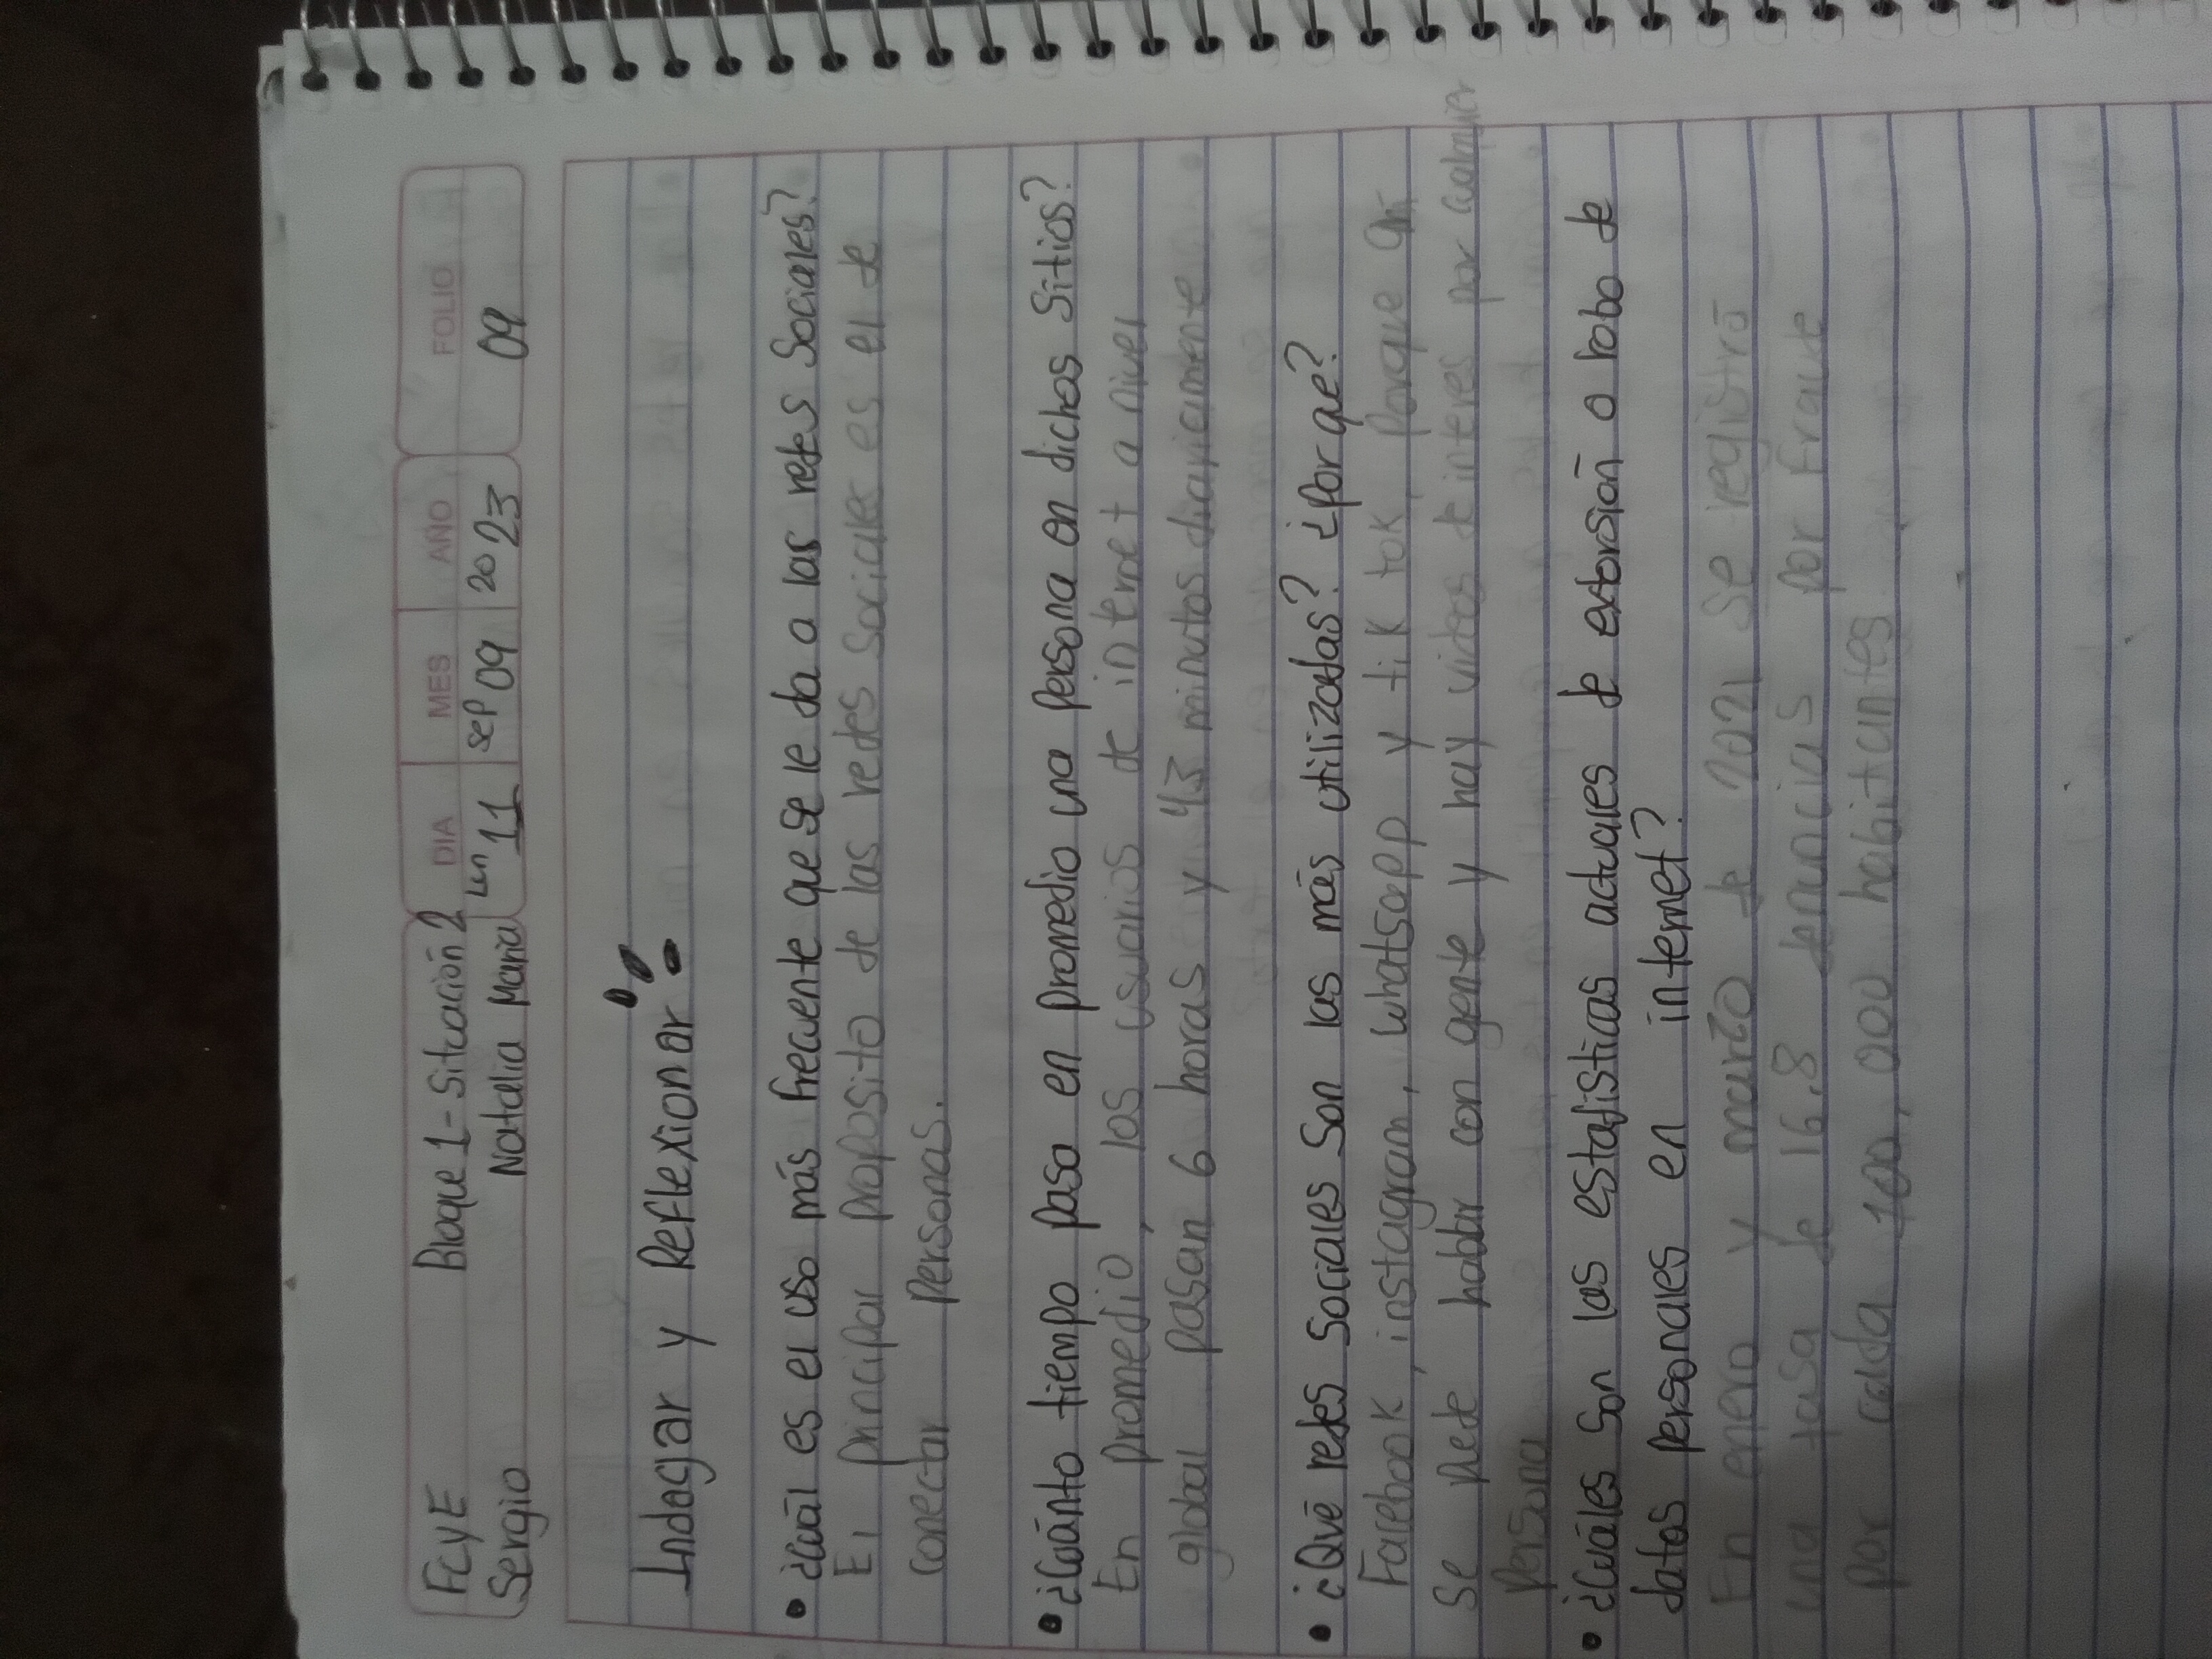 FCyE Bloque 1-Situación 2 DIA MES AÑO FOLIO
Sergio Natalia María Lun 11 sep 09 2023 09
Indagar y Reflexionar:
• ¿Cuál es el uso más frecuente que se le da a las redes sociales?
El principal proposito de las redes sociales es el de
conectar personas.
• ¿Cuánto tiempo pasa en promedio una persona en dichos sitios?
En promedio, los usuarios de internet a nivel
global pasan 6 horas y 43 minutos diariamente
• ¿Qué redes sociales son las más utilizadas? ¿por qué?
Facebook, instagram, whatsapp y tik tok, porque ahi
se puede hablar con gente y hay videos de interes por cualquier
persona
• ¿Cuáles son las estadisticas actuales de extorsión o robo de
datos personales en internet?
En enero y marzo de 2021 se registró
una tasa de 16.8 denuncias por fraude
por cada 100,000 habitantes